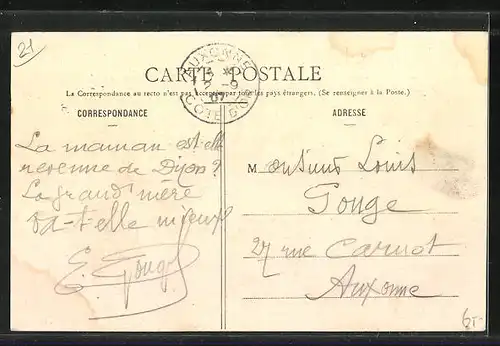 21
AUXONNE
7-9
07
COTE D'OR
CARTE POSTALE
La Correspondance au recto n'est pas acceptée par tous les pays étrangers, (Se renseignez à la Poste.)
CORRESPONDANCE
ADRESSE
La maman est-elle
revenue de Dijon ?
La grand'mère
va-t-elle mieux
E. Gouge
Monsieur Louis
Gouge
27 rue Carnot
Auxonne